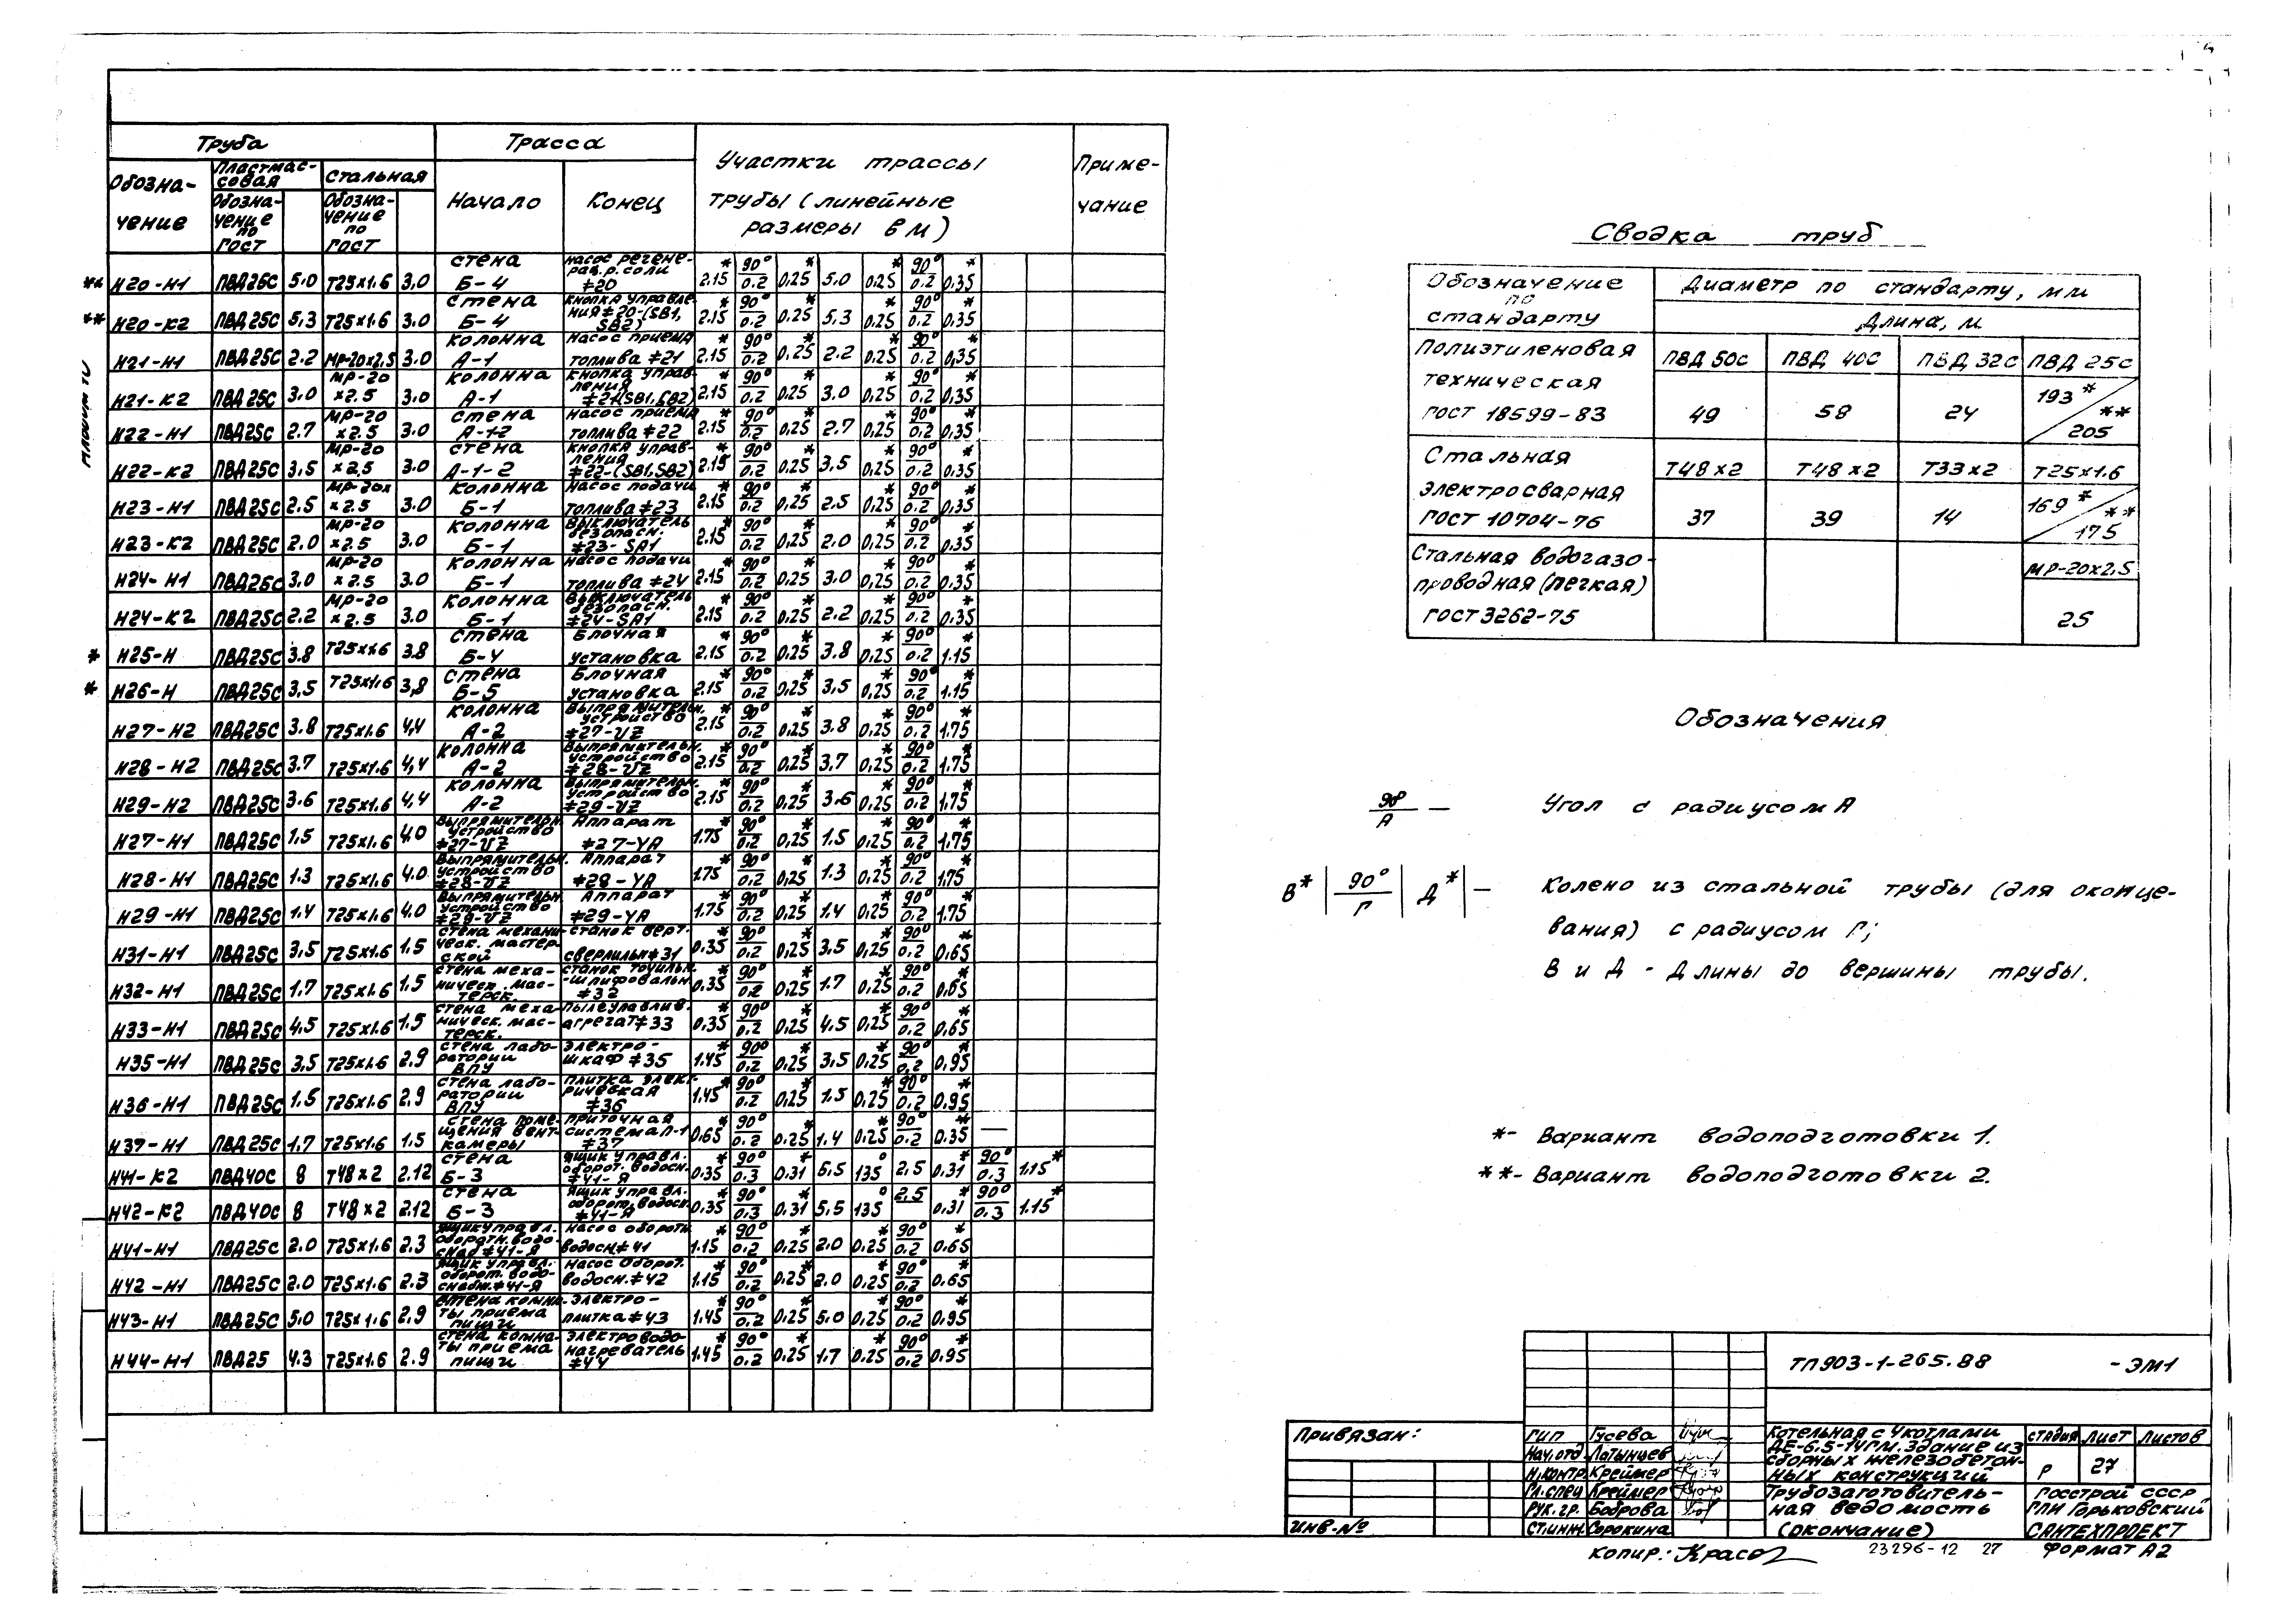 Труба
Трасса
Участки трассы трубы (линейные размеры в м)
Примечание
Обозна-
чение
Пластмас-
совая
Стальная
Начало
Конец
Обозна-
чение
по
ГОСТ
Обозна-
чение
по
ГОСТ
** Н20-Н1 ПВД25С 5.0 Т25х1.6 3.0 стена Б-4 насос регене-рац.р.соли #20 2.15 * 90°/0.2 0.25 * 5.0 0.25 * 90°/0.2 0.35 *
** Н20-К2 ПВД25С 5,3 Т25х1.6 3.0 стена Б-4 кнопка управле-ния #20-(SB1, SB2) 2.15 * 90°/0.2 0.25 * 5.3 0.25 * 90°/0.2 0.35 *
Н21-Н1 ПВД25С 2.2 МР-20х2.5 3.0 колонна А-1 Насос приема топлива #21 2.15 * 90°/0.2 0,25 * 2.2 0.25 * 90°/0.2 0,35 *
Н21-К2 ПВД25С 3.0 МР-20 х2.5 3.0 колонна А-1 кнопка управ-ления #21(SB1,SB2) 2.15 * 90°/0.2 0.25 * 3.0 0.25 * 90°/0.2 0.35 *
Н22-Н1 ПВД25С 2.7 МР-20 х2.5 3.0 стена А-1-2 Насос приема топлива #22 2.15 * 90°/0.2 0,25 * 2.7 0,25 * 90°/0.2 0.35 *
Н22-К2 ПВД25С 3,5 МР-20 х2,5 3.0 стена А-1-2 кнопка управ-ления #22-(SB1,SB2) 2.15 * 90°/0.2 0.25 * 3.5 0.25 * 90°/0.2 0.35 *
Н23-Н1 ПВД25С 2.5 МР-20х х2.5 3.0 колонна Б-1 Насос подачи топлива #23 2.15 * 90°/0.2 0,25 * 2.5 0,25 * 90°/0.2 0,35 *
Н23-К2 ПВД25С 2.0 МР-20 х2.5 3.0 колонна Б-1 Выключатель безопасн. #23-SA1 2.15 * 90°/0.2 0,25 * 2.0 0,25 * 90°/0.2 0.35 *
Н24-Н1 ПВД25С 3.0 МР-20 х2.5 3.0 колонна Б-1 Насос подачи топлива #24 2.15 * 90°/0.2 0,25 * 3.0 0.25 * 90°/0.2 0.35 *
Н24-К2 ПВД25С 2.2 МР-20 х2.5 3.0 колонна Б-1 Выключатель безопасн. #24-SA1 2.15 * 90°/0.2 0.25 * 2.2 0.25 * 90°/0.2 0.35 *
* Н25-Н ПВД25С 3.8 Т25х1.6 3.8 стена Б-4 Блочная установка 2.15 * 90°/0.2 0.25 * 3.8 0.25 * 90°/0.2 1.15 *
* Н26-Н ПВД25С 3,5 Т25х1.6 3,8 стена Б-5 Блочная установка 2.15 * 90°/0.2 0.25 * 3,5 0,25 * 90°/0.2 1.15 *
Н27-Н2 ПВД25С 3.8 Т25х1.6 4,4 колонна А-2 Выпрямительн. устройство #27-VZ 2.15 * 90°/0.2 0,25 * 3.8 0.25 * 90°/0.2 1.75 *
Н28-Н2 ПВД25С 3.7 Т25х1.6 4,4 колонна А-2 Выпрямительн. устройство #28-VZ 2.15 * 90°/0.2 0.25 * 3,7 0,25 * 90°/0.2 1.75 *
Н29-Н2 ПВД25С 3.6 Т25х1.6 4,4 колонна А-2 Выпрямительн. устройство #29-VZ 2.15 * 90°/0.2 0,25 * 3.6 0,25 * 90°/0.2 1.75 *
Н27-Н1 ПВД25С 1,5 Т25х1.6 4,0 Выпрямительн. устройство #27-VZ Аппарат #27-YA 1.75 * 90°/0.2 0,25 * 1.5 0,25 * 90°/0.2 1,75 *
Н28-Н1 ПВД25С 1.3 Т25х1.6 4.0 Выпрямительн. устройство #28-VZ Аппарат #28-YA 1.75 * 90°/0.2 0,25 * 1.3 0.25 * 90°/0.2 1.75 *
Н29-Н1 ПВД25С 1.4 Т25х1.6 4.0 Выпрямительн. устройство #29-VZ Аппарат #29-YA 1.75 * 90°/0.2 0.25 * 1.4 0.25 * 90°/0.2 1.75 *
Н31-Н1 ПВД25С 3,5 Т25х1.6 1.5 стена механи-ческ. мастер-ской станок верт. сверлильн #31 0.35 * 90°/0.2 0,25 * 3,5 0,25 * 90°/0.2 0,65 *
Н32-Н1 ПВД25С 1.7 Т25х1.6 1.5 стена меха-ническ. мас-терск. станок точильн.-шлифовальн #32 0,35 * 90°/0.2 0,25 * 1.7 0,25 * 90°/0.2 0,65 *
Н33-Н1 ПВД25С 4,5 Т25х1.6 1.5 стена меха-ническ. мас-терск. пылеулавлив. агрегат #33 0,35 * 90°/0.2 0,25 * 4.5 0,25 * 90°/0.2 0,65 *
Н35-Н1 ПВД25С 3,5 Т25х1.6 2.9 стена лабо-ратории ВПУ электро-шкаф #35 1.45 * 90°/0.2 0,25 * 3,5 0,25 * 90°/0.2 0,95 *
Н36-Н1 ПВД25С 1.5 Т25х1.6 2.9 стена лабо-ратории ВПУ плитка элект-рическая #36 1.45 * 90°/0.2 0,25 * 1.5 0,25 * 90°/0.2 0.95 *
Н37-Н1 ПВД25С 1,7 Т25х1.6 1.5 стена поме-щения вент-камеры приточная система П-1 #37 0,65 * 90°/0.2 0,25 * 1.4 0,25 * 90°/0.2 0.35 * —
Н41-К2 ПВД40С 8 Т48х2 2.12 стена Б-3 ящик управл. оборот. водосн. #41-Я 0.35 * 90°/0.3 0.31 * 5.5 135° 2.5 0.31 * 90°/0.3 1.15 *
Н42-К2 ПВД40С 8 Т48х2 2.12 стена Б-3 ящик управл. оборот. водосн. #41-Я 0.35 * 90°/0.3 0.31 * 5,5 135° 2.5 0.31 * 90°/0.3 1.15 *
Н41-Н1 ПВД25С 2.0 Т25х1.6 2.3 ящик управл. оборотн. водо-снаб #41-Я насос оборотн. водосн #41 1.15 * 90°/0.2 0,25 * 2.0 0.25 * 90°/0.2 0.65 *
Н42-Н1 ПВД25С 2.0 Т25х1.6 2.3 ящик управл. оборот. водо-снабн. #41-Я насос оборот. водосн. #42 1.15 * 90°/0.2 0.25 * 2.0 0.25 * 90°/0.2 0.65 *
Н43-Н1 ПВД25С 5.0 Т25х1.6 2.9 стена комна-ты приема пищи электро-плитка #43 1.45 * 90°/0.2 0,25 * 5.0 0.25 * 90°/0.2 0.95 *
Н44-Н1 ПВД25 4.3 Т25х1.6 2.9 стена комна-ты приема пищи электроводо-нагреватель #44 1.45 * 90°/0.2 0.25 * 1.7 0.25 * 90°/0.2 0.95 *
Сводка труб
Обозначение по стандарту
Диаметр по стандарту, мм
Длина, м
Полиэтиленовая техническая ГОСТ 18599-83
ПВД 50С ПВД 40С ПВД 32С ПВД 25С
49 58 24 193* / 205**
Стальная электросварная ГОСТ 10704-76
Т48х2 Т48х2 Т33х2 Т25х1.6
37 39 14 169* / 175**
Стальная водогазо-
проводная (легкая)
ГОСТ 3262-75
МР-20х2.5
25
Обозначения
90°/А — Угол с радиусом А
В* | 90°/Г | Д* | — Колено из стальной трубы (для оконце-
вания) с радиусом Г;
В и Д - Длины до вершины трубы.
*- Вариант водоподготовки 1.
**- Вариант водоподготовки 2.
ТП903-1-265.88 -ЭМ1
Привязан:
Инв.№
ГИП Гусева
Нач.отд. Латынцев
Н.контр. Креймер
Гл.спец Креймер
Рук.гр. Боброва
Ст.инж. Сорокина
Котельная с 4 котлами
ДЕ-6.5-14ГМ. Здание из
сборных железобетон-
ных конструкций
Стадия Лист Листов
Р 27
Трубозаготовитель-
ная ведомость
(окончание)
Госстрой СССР
ГПИ Горьковский
САНТЕХПРОЕКТ
Копир.: Красо
23296-12 27
Формат А2